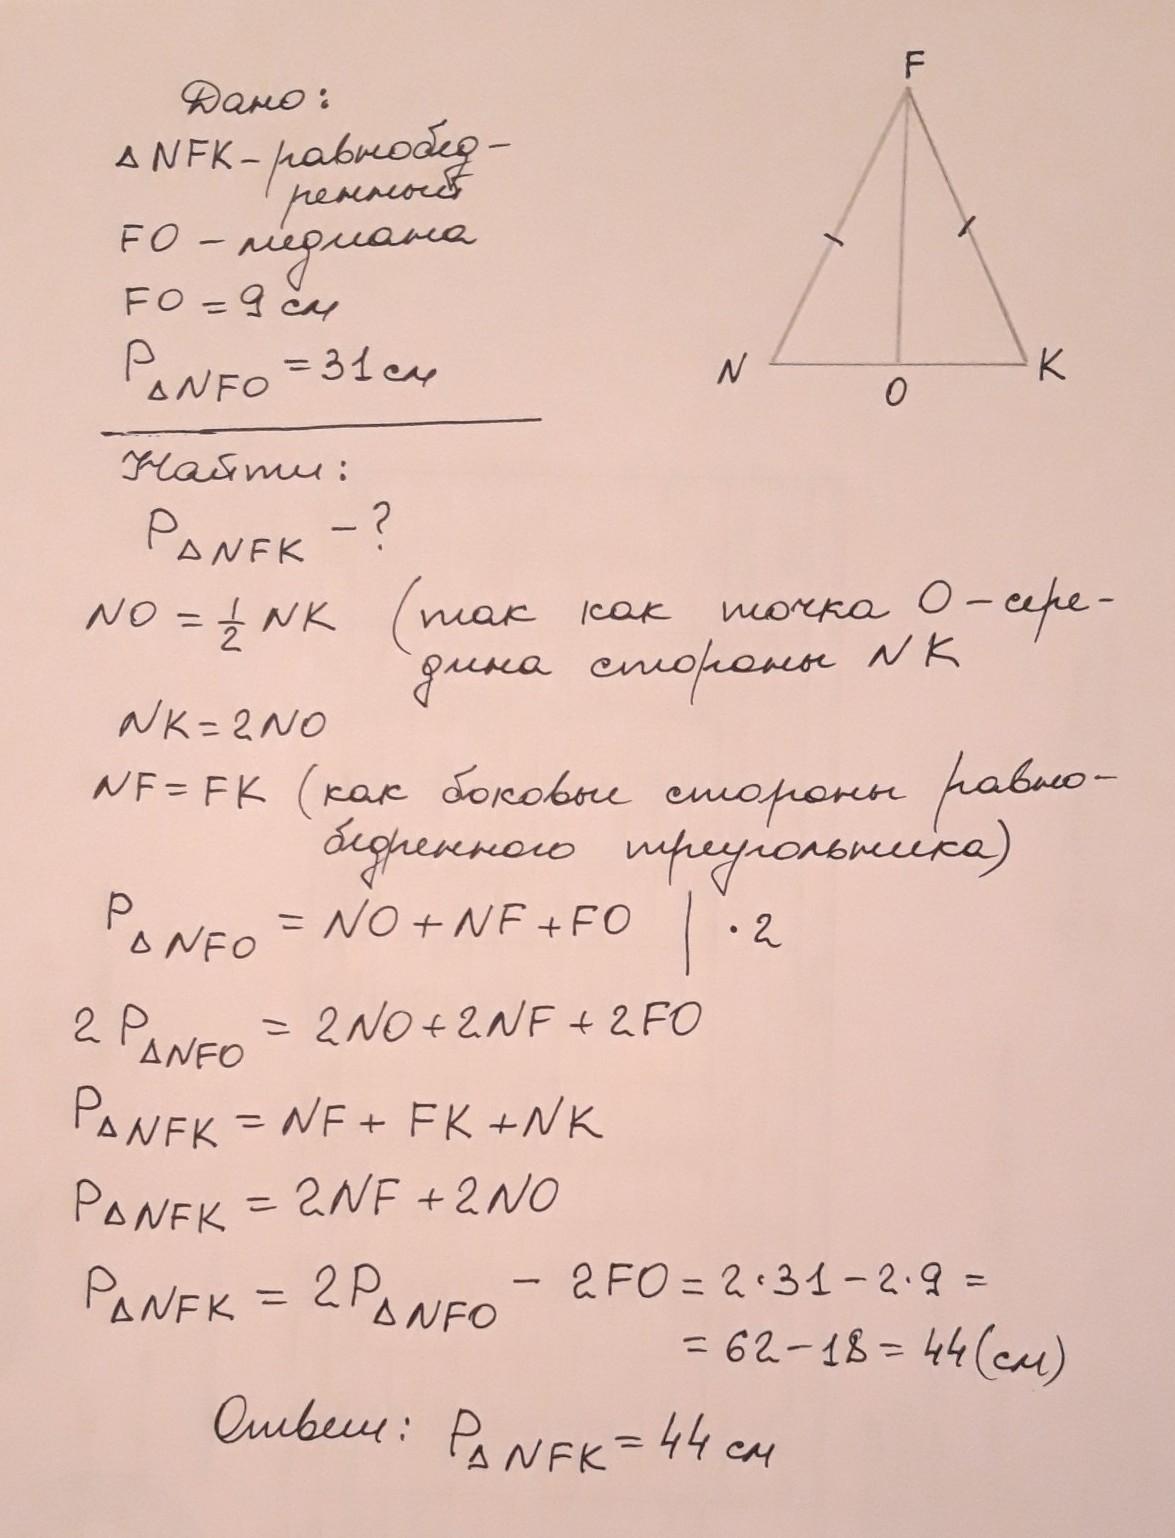 Дано:
F
△NFK - равнобед-
ренный
FO - медиана
FO = 9 см
P△NFO = 31 см
N
O
K
Найти:
P△NFK - ?
NO = 1/2 NK (так как точка O - сере-
дина стороны NK
NK = 2NO
NF = FK (как боковые стороны равно-
бедренного треугольника)
P△NFO = NO + NF + FO | · 2
2 P△NFO = 2NO + 2NF + 2FO
P△NFK = NF + FK + NK
P△NFK = 2NF + 2NO
P△NFK = 2P△NFO - 2FO = 2·31 - 2·9 =
= 62 - 18 = 44 (см)
Ответ: P△NFK = 44 см